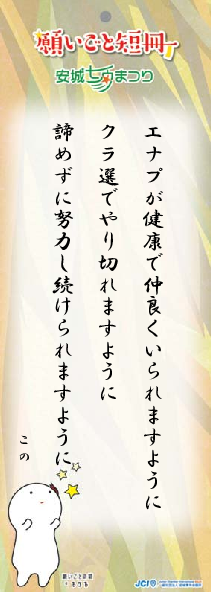 願いごと短冊
安城七夕まつり
エナプが健康で仲良くいられますように
クラ選でやり切れますように
諦めずに努力し続けられますように
この
願いごと短冊
JCI